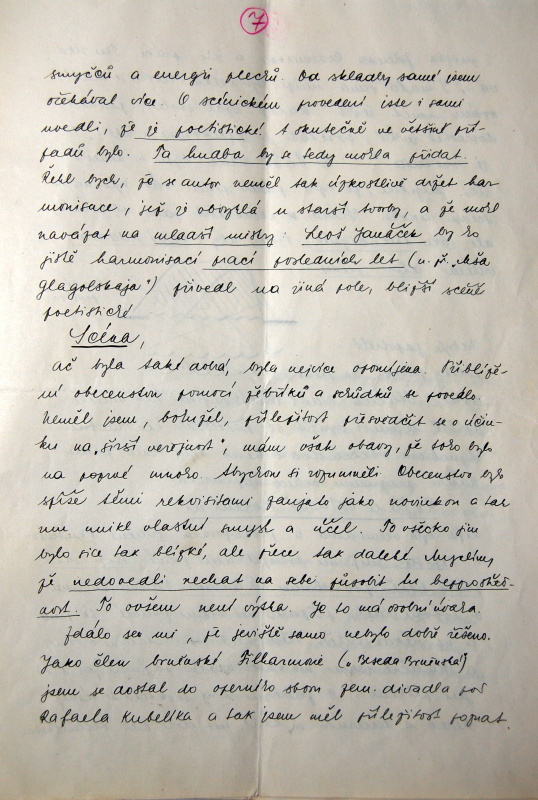 7
smyčců a energii plechů. Od skladby samé jsem
očekával více. O scénickém provedení jste i sami
uvedli, že je poetistické. A skutečně ve většině pří-
padů bylo. Ta hudba by se tedy mohla přidat.
Řekl bych, že se autor neměl tak úzkostlivě držet har
monisace, jež je obvyklá u starší tvorby, a že mohl
navázat na mladší mistry: Leoš Janáček by ho
jistě harmonisací prací posledních let (n. př. „Mša
glagolskaja") přivedl na jiná pole, bližší scéně
poetistické
Scéna,
Ač byla také dobrá, byla nejvíce opomíjena. Přiblíže-
ní obecenstvu pomocí žebříků a schůdků se povedlo.
Neměl jsem, bohužel, příležitost přesvědčit se o účin-
ku na „širší veřejnost", mám však obavy, že toho bylo
na poprvé mnoho. Abychom si rozuměli. Obecenstvo bylo
spíše těmi rekvisitami zaujato jako novinkou a tak
mu unikl vlastní smysl a účel. To všecko jim
bylo sice tak blízké, ale přece tak daleké. Myslím,
že nedovedli nechat na sebe působit tu bezprostřed-
nost. To ovšem není výtka. Je to má osobní úvaha.
Zdálo se mi, že jeviště samo nebylo dobře řešeno.
Jako člen brněnské Filharmonie („Beseda Brněnská")
jsem se dostal do operního sboru zem. divadla pod
Rafaela Kubelíka a tak jsem měl příležitost poznat